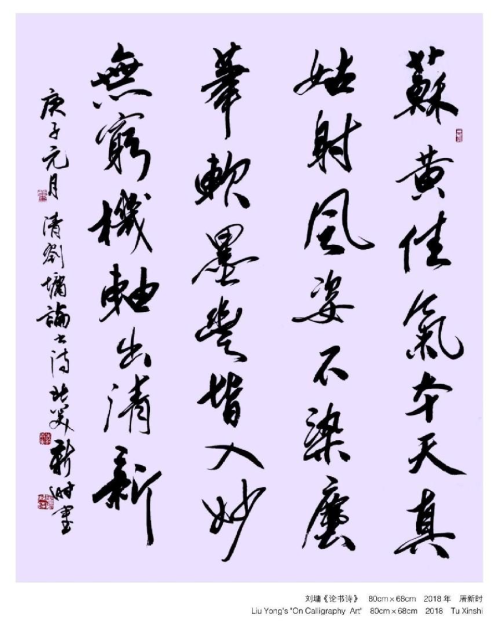 蘇黄佳氣本天真
姑射風姿不染塵
筆軟墨豐皆入妙
無窮機軸出清新
庚子元月 清劉墉論书诗 北美新时書
刘墉《论书诗》 80cm×68cm 2018年 屠新时
Liu Yong's "On Calligraphy Art" 80cm×68cm 2018 Tu Xinshi